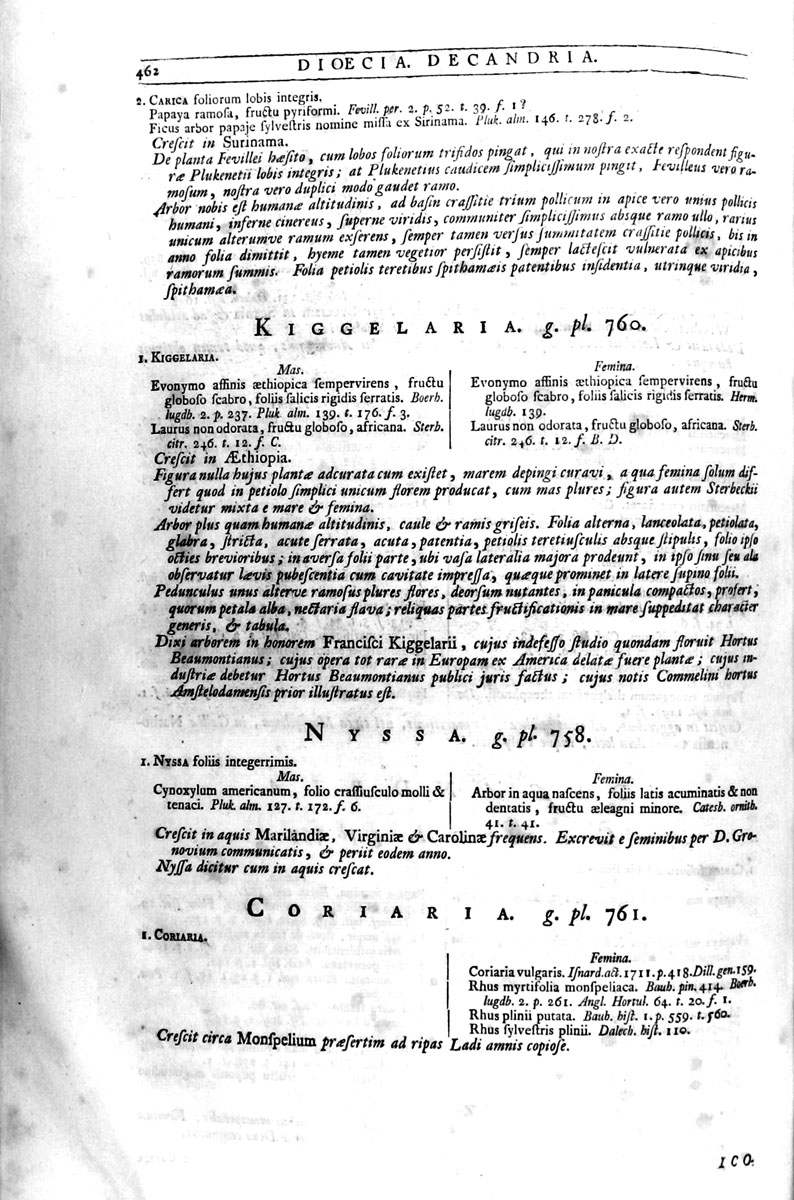 462
DIOECIA. DECANDRIA.
2. CARICA foliorum lobis integris.
Papaya ramoſa, fructu pyriformi. Fevill. per. 2. p. 52. t. 39. f. 1?
Ficus arbor papaje ſylveſtris nomine miſſa ex Sirinama. Pluk. alm. 146. t. 278. f. 2.
Creſcit in Surinama.
De planta Fevillei hæſito, cum lobos foliorum trifidos pingat, qui in noſtra exacte reſpondent figu-
ræ Plukenetii lobis integris; at Plukenetius caudicem ſimpliciſſimum pingit, Fevilleus vero ra-
moſum, noſtra vero duplici modo gaudet ramo.
Arbor nobis eſt humanæ altitudinis, ad baſin craſſitie trium pollicum in apice vero unius pollicis
humani, inferne cinereus, ſuperne viridis, communiter ſimpliciſſimus absque ramo ullo, rarius
unicum alterumve ramum exſerens, ſemper tamen verſus ſummitatem craſſitie pollicis, bis in
anno folia dimittit, hyeme tamen vegetior perſiſtit, ſemper lacteſcit vulnerata ex apicibus
ramorum ſummis. Folia petiolis teretibus ſpithamæis patentibus inſidentia, utrinque viridia,
ſpithamæa.
KIGGELARIA. g. pl. 760.
1. KIGGELARIA.
Mas.
Evonymo affinis æthiopica ſempervirens, fructu
globoſo ſcabro, foliis ſalicis rigidis ſerratis. Boerh.
lugdb. 2. p. 237. Pluk alm. 139. t. 176. f. 3.
Laurus non odorata, fructu globoſo, africana. Sterb.
citr. 246. t. 12. f. C.
Femina.
Evonymo affinis æthiopica ſempervirens, fructu
globoſo ſcabro, foliis ſalicis rigidis ſerratis. Herm.
lugdb. 139.
Laurus non odorata, fructu globoſo, africana. Sterb.
citr. 246. t. 12. f. B. D.
Creſcit in Æthiopia.
Figura nulla hujus plantæ adcurata cum exiſtet, marem depingi curavi, a qua femina ſolum dif-
fert quod in petiolo ſimplici unicum florem producat, cum mas plures; figura autem Sterbeckii
videtur mixta e mare & femina.
Arbor plus quam humanæ altitudinis, caule & ramis griſeis. Folia alterna, lanceolata, petiolata,
glabra, ſtricta, acute ſerrata, acuta, patentia, petiolis teretiuſculis absque ſtipulis, folio ipſo
octies brevioribus; in averſa folii parte, ubi vaſa lateralia majora prodeunt, in ipſo ſinu ſeu ala
obſervatur lævis pubeſcentia cum cavitate impreſſa, quæque prominet in latere ſupino folii.
Pedunculus unus alterve ramoſus plures flores, deorſum nutantes, in panicula compactos, profert,
quorum petala alba, nectaria flava; reliquas partes fructificationis in mare ſuppeditat character
generis, & tabula.
Dixi arborem in honorem Franciſci Kiggelarii, cujus indefeſſo ſtudio quondam floruit Hortus
Beaumontianus; cujus opera tot raræ in Europam ex America delatæ fuere plantæ; cujus in-
duſtriæ debetur Hortus Beaumontianus publici juris factus; cujus notis Commelini hortus
Amſtelodamenſis prior illuſtratus eſt.
NYSSA. g. pl. 758.
1. NYSSA foliis integerrimis.
Mas.
Cynoxylum americanum, folio craſſiuſculo molli &
tenaci. Pluk. alm. 127. t. 172. f. 6.
Femina.
Arbor in aqua naſcens, foliis latis acuminatis & non
dentatis, fructu æleagni minore. Catesb. ornith.
41. t. 41.
Creſcit in aquis Marilandiæ, Virginiæ & Carolinæ frequens. Excrevit e ſeminibus per D. Gro-
novium communicatis, & periit eodem anno.
Nyſſa dicitur cum in aquis creſcat.
CORIARIA. g. pl. 761.
1. CORIARIA.
Femina.
Coriaria vulgaris. Iſnard. act. 1711. p. 418. Dill. gen. 159.
Rhus myrtifolia monſpeliaca. Bauh. pin. 414. Boerh.
lugdb. 2. p. 261. Angl. Hortul. 64. t. 20. f. 1.
Rhus plinii putata. Bauh. hiſt. 1. p. 559. t. 560.
Rhus ſylveſtris plinii. Dalech. hiſt. 110.
Creſcit circa Monſpelium præſertim ad ripas Ladi amnis copioſe.
ICO.